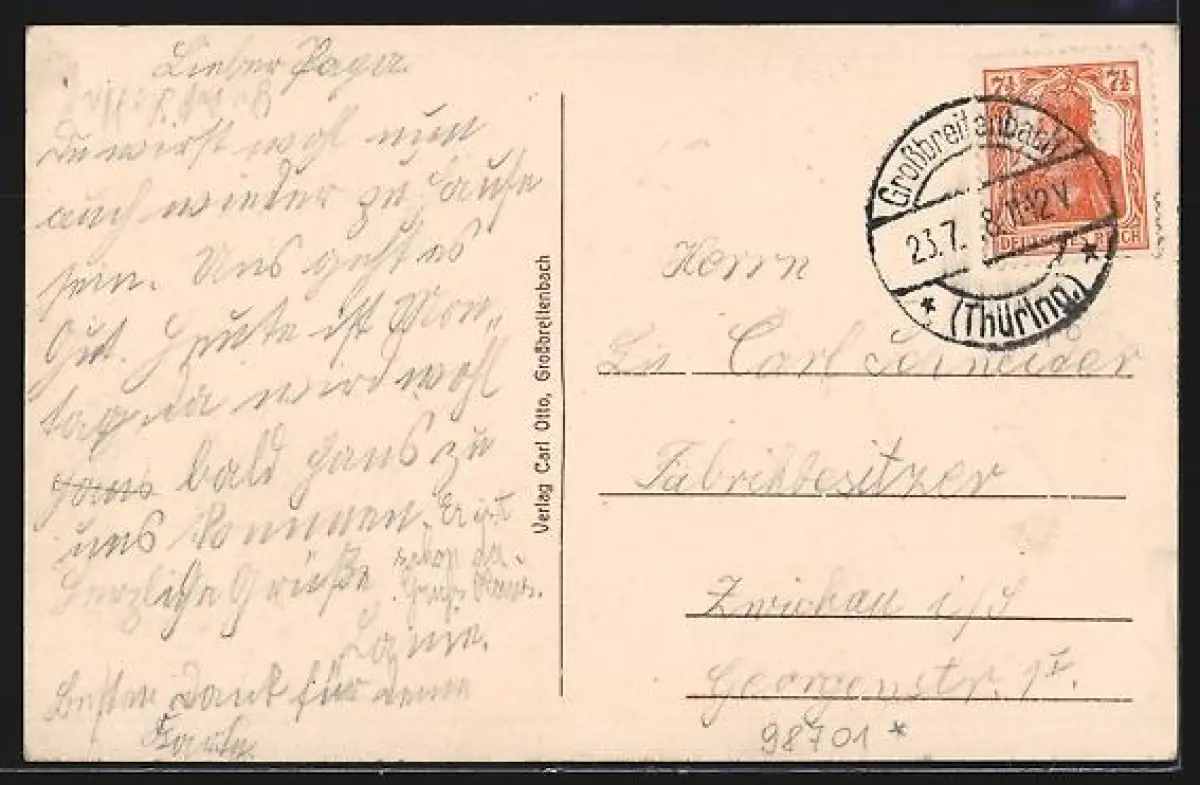 Lieber Papa.
Du wirst wohl nun
auch wieder zu Hause
sein. Uns geht es
Gut. Heute ist Mon-
tag, da wird wohl
bald Hans zu
uns kommen. Er ist
schon da.
Herzliche Grüße
Besten Dank für deine
Karte
Verlag Carl Otto, Großbreitenbach
7½ 7½
DEUTSCHES REICH
Großbreitenbach
23.7. 8.11-12V
* (Thüring.) *
Herrn
Carl Schneider
Fabrikbesitzer
Zwickau i/S
Georgenstr. 1
98701 *